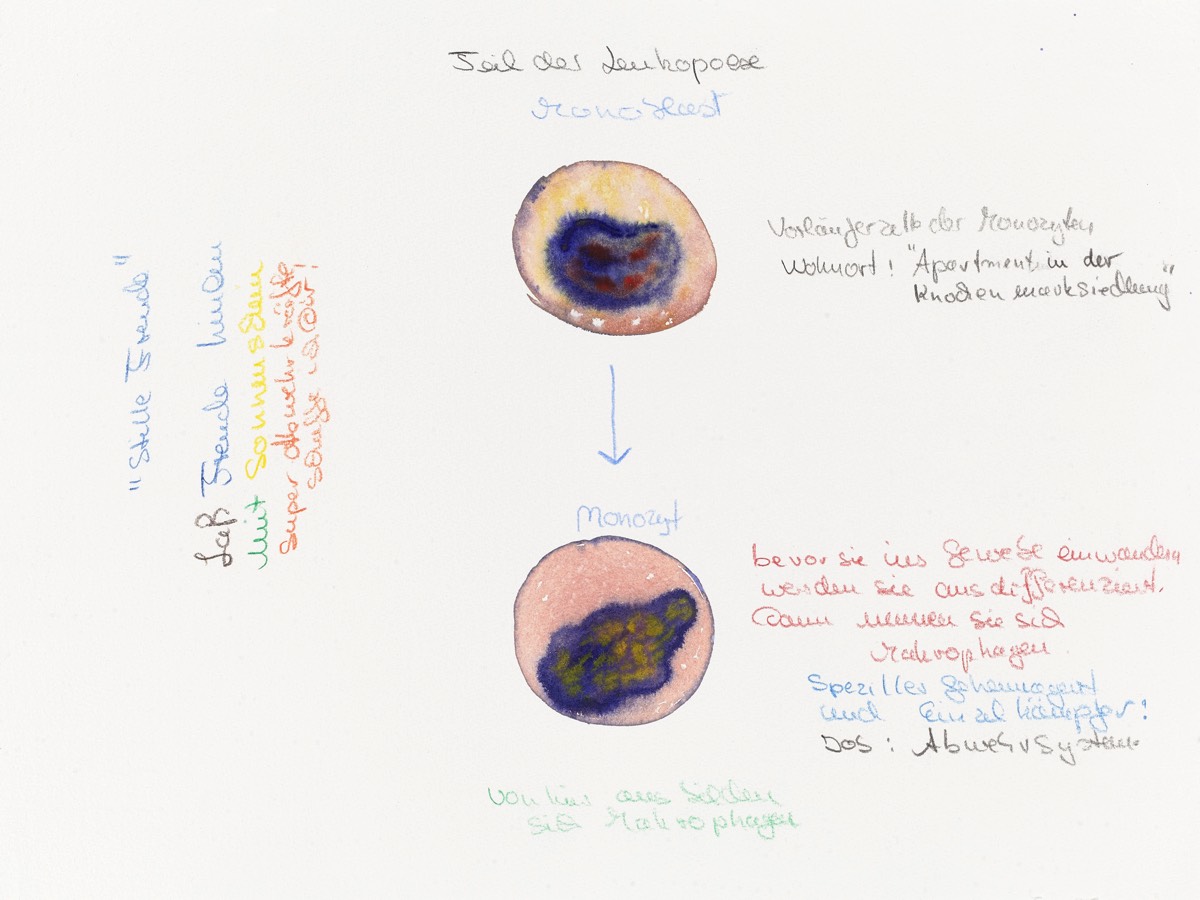 Teil der Leukopoese
Monoblast
Vorläuferzelle der Monozyten
Wohnort! "Apartment in der
Knochenmarksiedlung"
Monozyt
bevor sie ins Gewebe einwandern
werden sie ausdifferenziert.
Dann nennen sie sich
Makrophagen
Spezieller Geheimagent
und Einzelkämpfer!
Job: Abwehrsystem
von hier aus bilden
sich Makrophagen
"Stille Freude"
Laß Freude hinein
Mit Sonnenschein
Super Abwehrkräfte